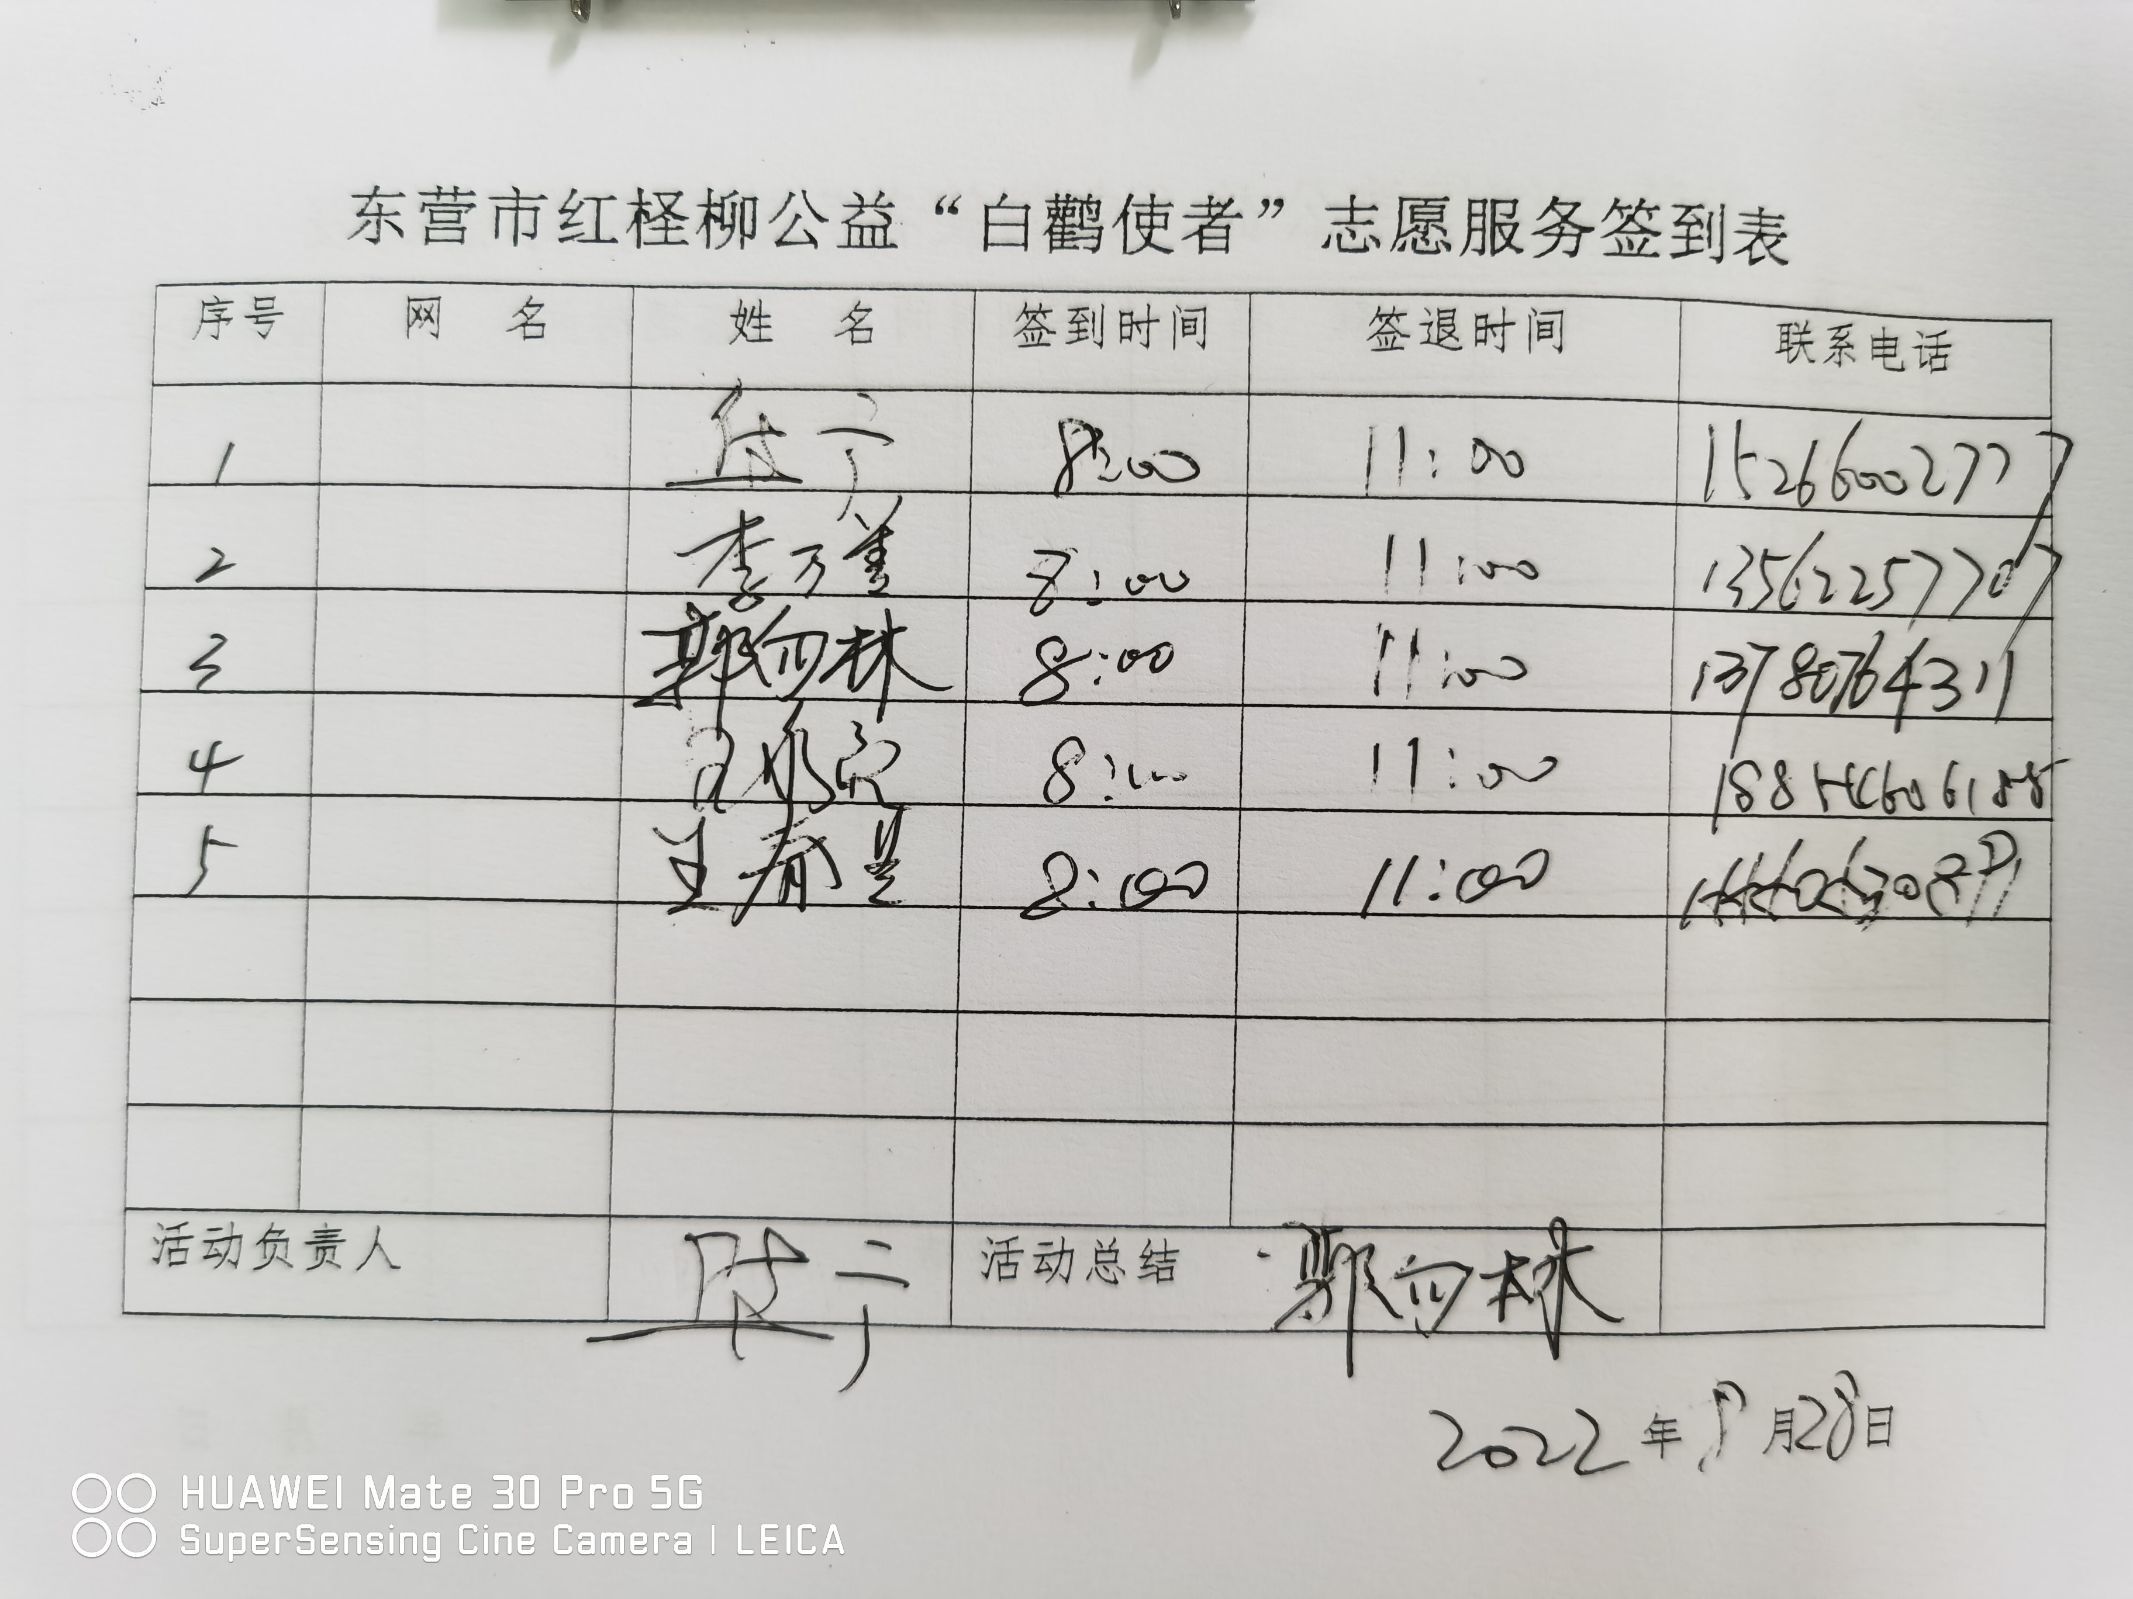 东营市红柽柳公益“白鹳使者”志愿服务签到表
序号 网 名 姓 名 签到时间 签退时间 联系电话
1 8:00 11:00 15266002777
2 李万美 8:00 11:00 13562257707
3 郭向林 8:00 11:00 13780764311
4 8:00 11:00
5 王春兰 8:00 11:00
活动负责人 活动总结 郭向林
2022年 月28日
HUAWEI Mate 30 Pro 5G
SuperSensing Cine Camera | LEICA